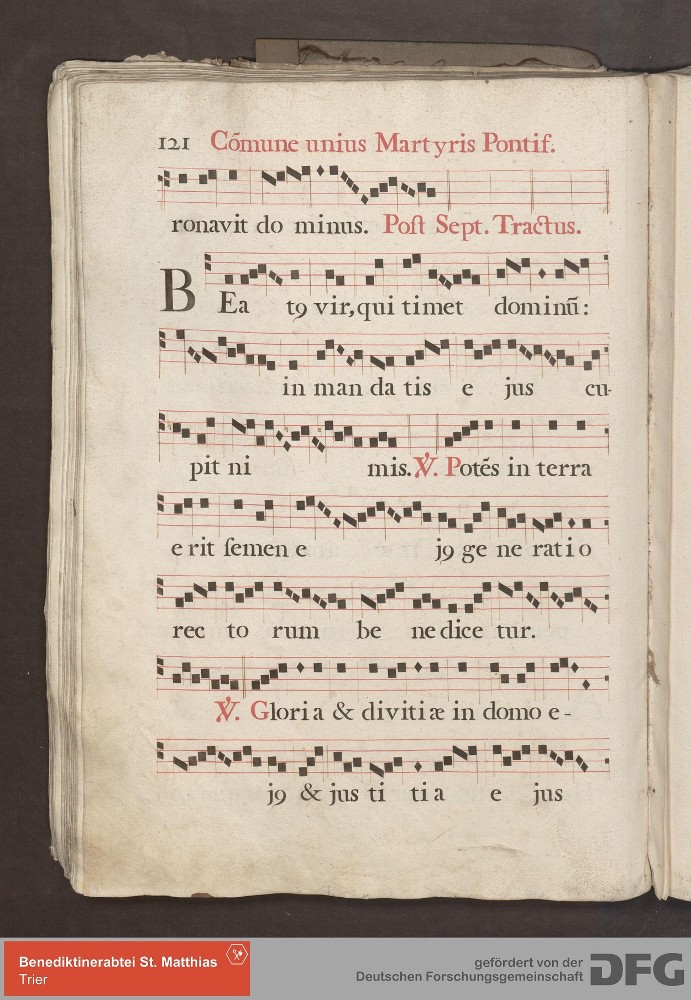 121 Cõmune unius Martyris Pontif.
ronavit do minus. Post Sept. Tractus.
BEa t9 vir, qui timet dominũ:
in man da tis e jus cu-
pit ni mis. ℣. Potẽs in terra
e rit semen e j9 ge ne ratio
rec to rum be ne dice tur.
℣. Gloria & divitiæ in domo e-
j9 & jus ti tia e jus
Benediktinerabtei St. Matthias
Trier
gefördert von der
Deutschen Forschungsgemeinschaft DFG